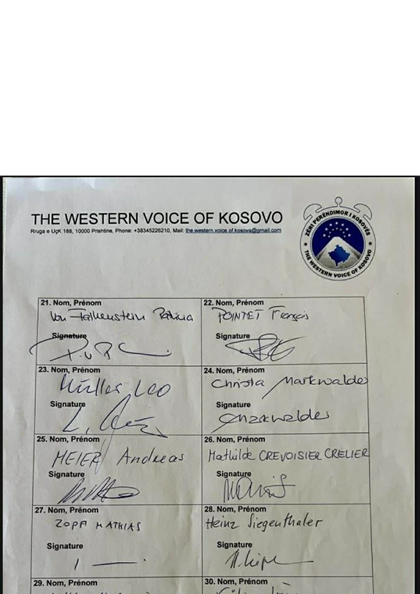 THE WESTERN VOICE OF KOSOVO
Rruga e UçK 188, 10000 Prishtine, Phone: +38345226210, Mail: the.western.voice.of.kosova@gmail.com
ZËRI PERËNDIMOR I KOSOVËS
THE WESTERN VOICE OF KOSOVO
21. Nom, Prénom
Von Falkenstein Patricia
Signature
22. Nom, Prénom
POINTET François
Signature
23. Nom, Prénom
Müller Leo
Signature
24. Nom, Prénom
Christa Markwalder
Signature
Markwalder
25. Nom, Prénom
MEIER Andreas
Signature
26. Nom, Prénom
Mathilde CREVOISIER CRELIER
Signature
27. Nom, Prénom
ZOPF MATHIAS
Signature
28. Nom, Prénom
Heinz Siegenthaler
Signature
29. Nom, Prénom
30. Nom, Prénom